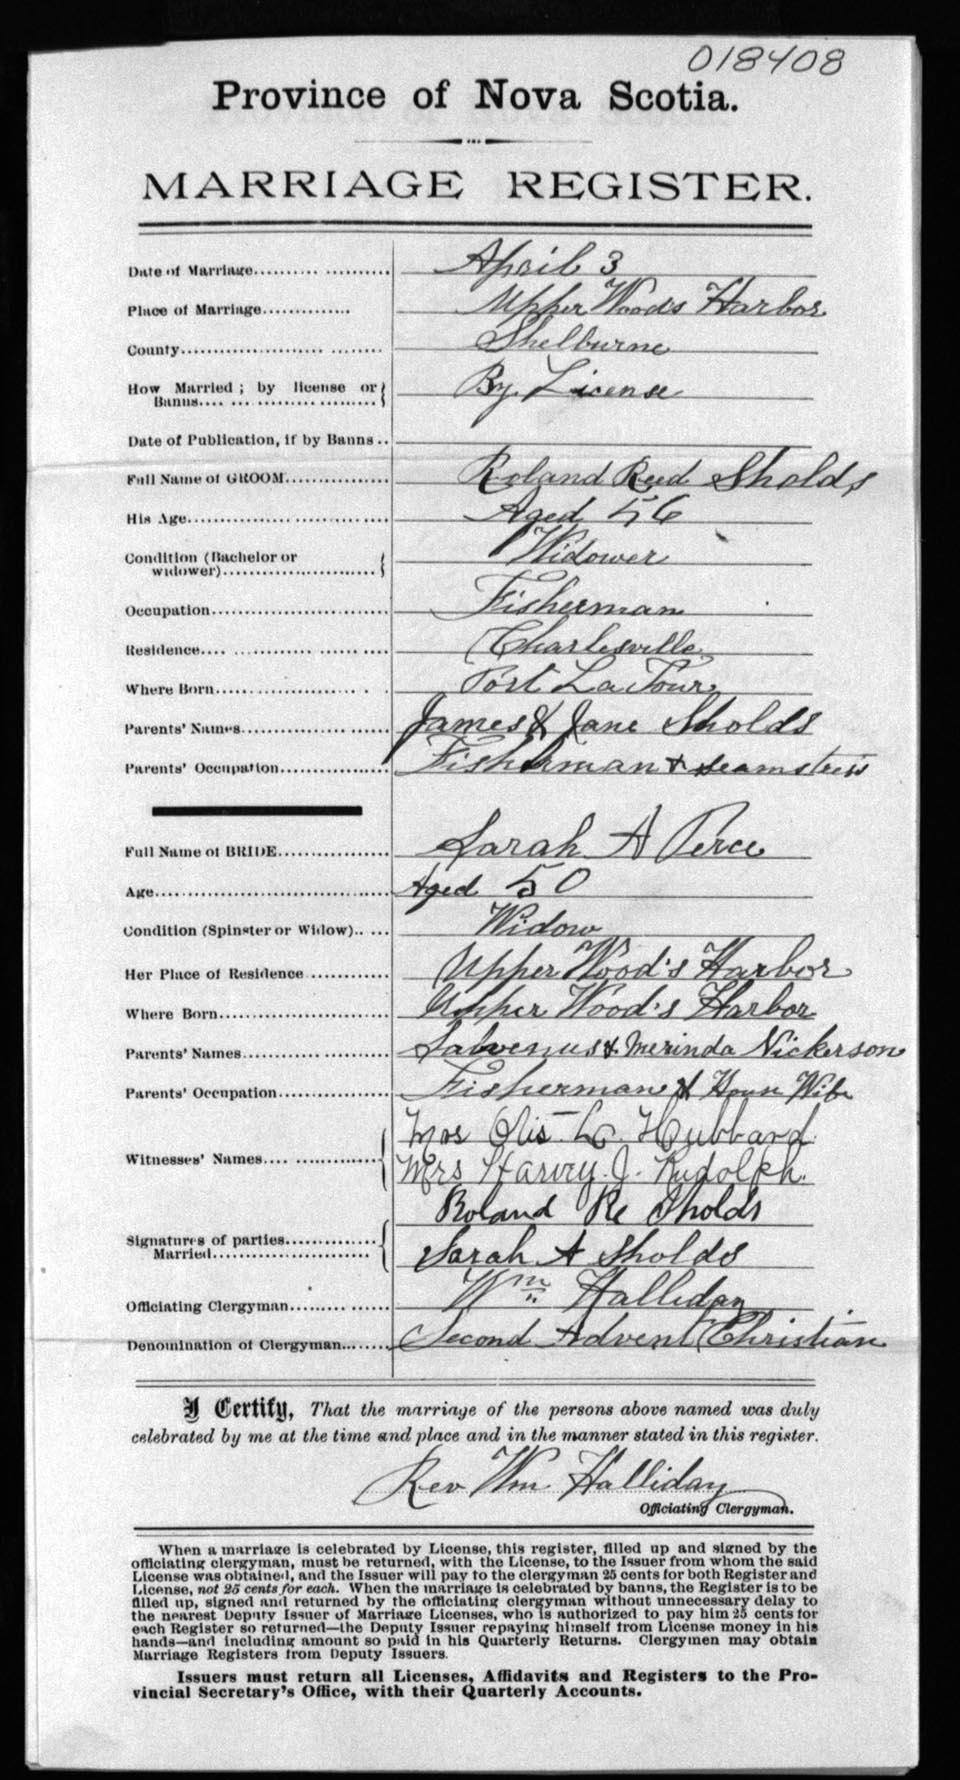 018408
Province of Nova Scotia.
MARRIAGE REGISTER.
Date of Marriage.......... .......... April 3
Place of Marriage.............. Upper Woods Harbor
County.................... ........ Shelburne
How Married; by license or Banns.... ... ................ By License
Date of Publication, if by Banns..
Full Name of GROOM................ Roland Reed Sholds
His Age.................. .......... Aged 56
Condition (Bachelor or widower)........................ Widower
Occupation........................... Fisherman
Residence.... ............. ...... .... Charlesville
Where Born.............. .. . . Port La Tour
Parents' Names............... ...... James & Jane Sholds
Parents' Occupation................. Fisherman & seamstress
Full Name of BRIDE................. Sarah A Perce
Age.................................... Aged 50
Condition (Spinster or Widow).. .... Widow
Her Place of Residence ............ Upper Wood's Harbor
Where Born.......................... Upper Wood's Harbor
Parents' Names............ .......... & Merinda Nickerson
Parents' Occupation................. Fisherman & House Wife
Witnesses' Names.... ............. Mrs Otis L. Hubbard
Mrs Harvey. J. Rudolph.
Roland Re Sholds
Signatures of parties.............. Married......................... Sarah A Sholds
Officiating Clergyman......... ....... Wm Halliday
Denomination of Clergyman......... Second Advent Christian
I Certify, That the marriage of the persons above named was duly
celebrated by me at the time and place and in the manner stated in this register.
Rev Wm. Halliday
Officiating Clergyman.
When a marriage is celebrated by License, this register, filled up and signed by the
officiating clergyman, must be returned, with the License, to the Issuer from whom the said
License was obtained, and the Issuer will pay to the clergyman 25 cents for both Register and
License, not 25 cents for each. When the marriage is celebrated by banns, the Register is to be
filled up, signed and returned by the officiating clergyman without unnecessary delay to
the nearest Deputy Issuer of Marriage Licenses, who is authorized to pay him 25 cents for
each Register so returned—the Deputy Issuer repaying himself from License money in his
hands—and including amount so paid in his Quarterly Returns. Clergymen may obtain
Marriage Registers from Deputy Issuers.
Issuers must return all Licenses, Affidavits and Registers to the Pro-
vincial Secretary's Office, with their Quarterly Accounts.